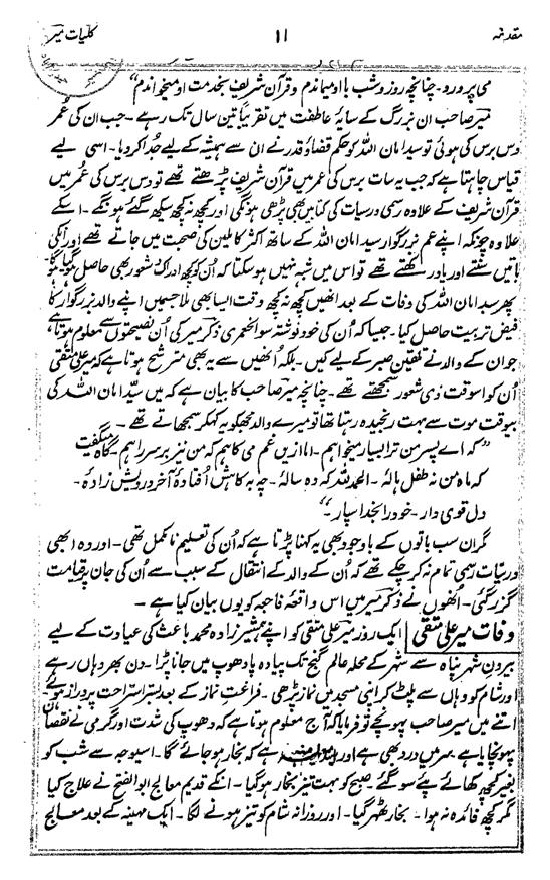 مقدمہ ۱۱ کلیات میر
می پرورد۔ چنانچہ روز و شب با او میماندم و قرآن شریف بخدمت او میخواندم"
میر صاحب ان بزرگ کے سایۂ عاطفت میں تقریباً تین سال تک رہے۔ جب ان کی عمر
دس برس کی ہوئی تو سید امان اللہ کو حکم قضا و قدر نے ان سے ہمیشہ کے لیے جدا کر دیا۔ اسی لیے
قیاس چاہتا ہے کہ جب یہ سات برس کی عمر میں قرآن شریف پڑھتے تھے تو دس برس کی عمر میں
قرآن شریف کے علاوہ رسمی درسیات کی کتابیں بھی پڑھی ہونگی اور کچھ نہ کچھ سیکھ گئے ہونگے۔ اسکے
علاوہ چونکہ اپنے عم بزرگوار سید امان اللہ کے ساتھ اکثر کاملین کی صحبت میں جاتے تھے اور انکی
باتیں سنتے اور یاد رکھتے تھے تو اس میں شبہ نہیں ہو سکتا کہ اُن کو کچھ ادراک شعور بھی حاصل ہو گیا ہو گا
پھر سید امان اللہ کی وفات کے بعد انھیں کچھ نہ کچھ وقت ایسا بھی ملا جسمیں اپنے والد بزرگوار کا
فیض تربیت حاصل کیا۔ جیسا کہ اُن کی خود نوشتہ سوانحعمری ذکر میر کی اُن نصیحتوں سے معلوم ہوتا ہے
جو ان کے والد نے تلقین صبر کے لیے کیں۔ بلکہ اُنھیں سے یہ بھی مترشح ہوتا ہے کہ میر علی متقی
اُن کو اسوقت ذی شعور سمجھتے تھے۔ چنانچہ میر صاحب کا بیان ہے کہ میں سید امان اللہ کی
بیوقت موت سے بہت رنجیدہ رہتا تھا تو میرے والد مجھکو یہ کہکر سمجھاتے تھے۔
"کہ اے پسر من ترا بسیار میخواہم۔ اما ازیں غم می کاہم کہ من نیز بر سر راہم۔ گاہ میگفت
کہ ماہ من نہ طفل ہالہ۔ الحمد للہ کہ دہ سالہ۔ چہ بہ کاہش افتادۂ آخر درویش زادۂ۔
دل قوی دار۔ خود را بخدا سپار۔"
مگر ان سب باتوں کے باوجود بھی یہ کہنا پڑتا ہے کہ اُن کی تعلیم نامکمل تھی۔ اور وہ ابھی
درسیات رسمی تمام نہ کر چکے تھے کہ اُن کے والد کے انتقال کے سبب سے اُن کی جان پر قیامت
گزر گئی۔ اُنھوں نے ذکر میر میں اس واقعۂ فاجعہ کو یوں بیان کیا ہے۔
وفات میر علی متقی ایک روز میر علی متقی کو اپنے ہمشیر زادہ محمد باعث کی عیادت کے لیے
بیرون شہر پناہ سے شہر کے محلہ عالم گنج تک پیادہ پا دھوپ میں جانا پڑا۔ دن بھر وہاں رہے
اور شام کو وہاں سے پلٹ کر اپنی مسجد میں نماز پڑھی۔ فراغت نماز کے بعد بستر استراحت پر دراز ہوئے
اتنے میں میر صاحب پہونچے تو فرمایا کہ آج معلوم ہوتا ہے کہ دھوپ کی شدت اور گرمی نے نقصان
پہونچایا ہے سر میں درد بھی ہے اور ہے کہ بخار ہو جائے گا۔ اسیوجہ سے شب کو
بغیر کچھ کھائے پئے سو گئے۔ صبح کو بہت تیز بخار ہو گیا۔ انکے قدیم معالج ابوالفتح نے علاج کیا
مگر کچھ فائدہ نہ ہوا۔ بخار ٹھہر گیا۔ اور روزانہ شام کو تیز ہونے لگا۔ ایک مہینہ کے بعد معالج